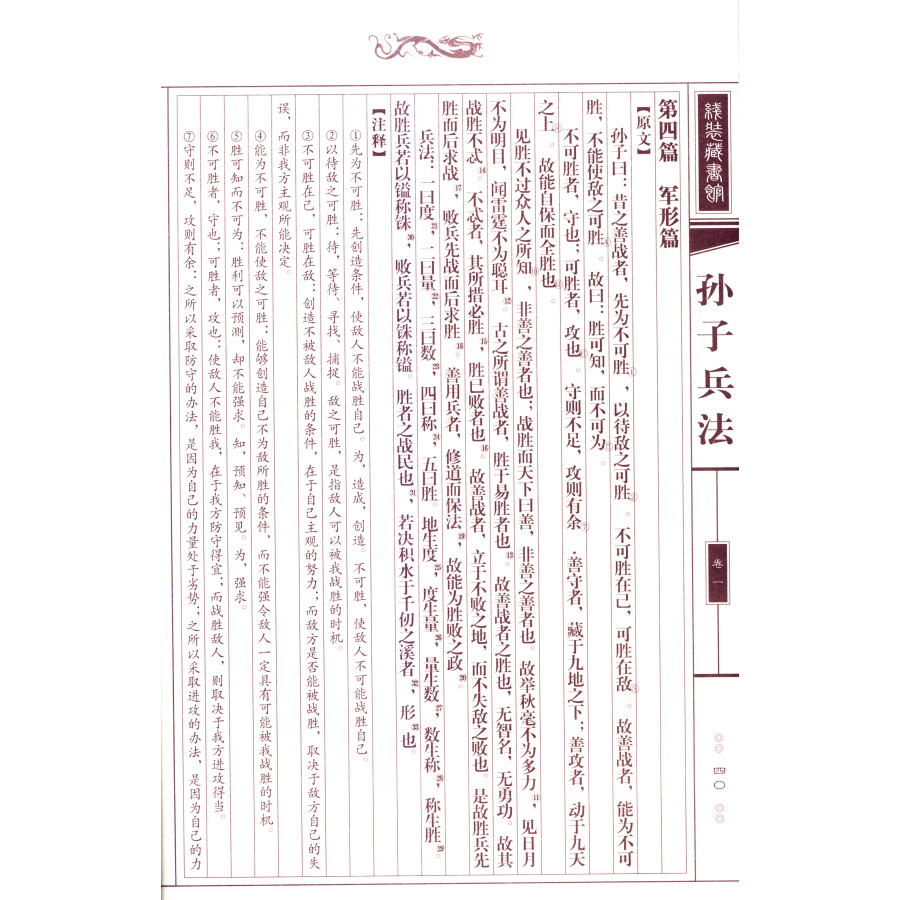 线装藏书馆
孙子兵法
卷一
四〇
第四篇 军形篇
【原文】
孙子曰：昔之善战者，先为不可胜①，以待敌之可胜②。不可胜在己，可胜在敌③。故善战者，能为不可
胜，不能使敌之可胜④。故曰：胜可知，而不可为⑤。
不可胜者，守也；可胜者，攻也⑥。守则不足，攻则有余⑦。善守者，藏于九地之下；善攻者，动于九天
之上⑧。故能自保而全胜也⑨。
见胜不过众人之所知⑩，非善之善者也；战胜而天下曰善，非善之善者也。故举秋毫不为多力⑪，见日月
不为明目，闻雷霆不为聪耳⑫。古之所谓善战者，胜于易胜者也⑬。故善战者之胜也，无智名，无勇功。故其
战胜不忒⑭。不忒者，其所措必胜⑮，胜已败者也⑯。故善战者，立于不败之地，而不失敌之败也。是故胜兵先
胜而后求战⑰，败兵先战而后求胜⑱。善用兵者，修道而保法⑲，故能为胜败之政⑳。
兵法：一曰度㉑，二曰量㉒，三曰数㉓，四曰称㉔，五曰胜。地生度㉕，度生量㉖，量生数㉗，数生称㉘，称生胜㉙。
故胜兵若以镒称铢㉚，败兵若以铢称镒。胜者之战民也㉛，若决积水于千仞之溪者㉜，形㉝也。
【注释】
①先为不可胜：先创造条件，使敌人不能战胜自己。为，造成，创造。不可胜，使敌人不可能战胜自己。
②以待敌之可胜：待，等待、寻找、捕捉。敌之可胜，是指敌人可以被我战胜的时机。
③不可胜在己，可胜在敌：创造不被敌人战胜的条件，在于自己主观的努力；而敌方是否能被战胜，取决于敌方自己的失
误，而非我方主观所能决定。
④能为不可胜，不能使敌之可胜：能够创造自己不为敌所胜的条件，而不能强令敌人一定具有可能被我战胜的时机。
⑤胜可知而不可为：胜利可以预测，却不能强求。知，预知、预见。为，强求。
⑥不可胜者，守也；可胜者，攻也：使敌人不能胜我，在于我方防守得宜；而战胜敌人，则取决于我方进攻得当。
⑦守则不足，攻则有余：之所以采取防守的办法，是因为自己的力量处于劣势；之所以采取进攻的办法，是因为自己的力